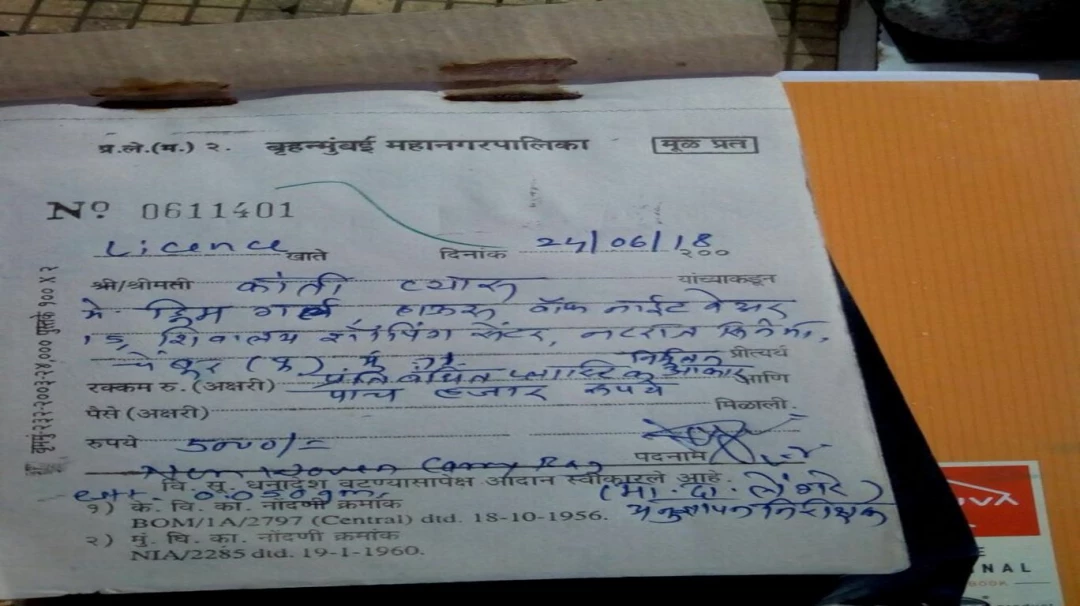 प्र.ले.(म.) २. बृहन्मुंबई महानगरपालिका मूळ प्रत
Nº 0611401
Licence खाते दिनांक 24/06/18 २००
श्री/श्रीमती कांती यांच्याकडून
मे. ड्रिम गर्ल, हाऊस ऑफ नाईट वेअर
15, शिवालय शॉपिंग सेंटर, नटराज सिनेमा,
चेंबूर (पू.) मुं. 71. प्रीत्यर्थ
प्रतिबंधित प्लास्टिक
रक्कम रु. (अक्षरी) पाच हजार रुपये आणि
पैसे (अक्षरी) मिळाली.
रुपये 5000/= पदनाम
Non Woven Carry Bag
वि. सू. धनादेश वटण्यासापेक्ष आदान स्वीकारले आहे.
wt. 0.050gm,
१) के. वि. का. नोंदणी क्रमांक
BOM/1A/2797 (Central) dtd. 18-10-1956.
अनुज्ञापन निरीक्षक
२) मुं. वि. का. नोंदणी क्रमांक
NIA/2285 dtd. 19-1-1960.
NAL